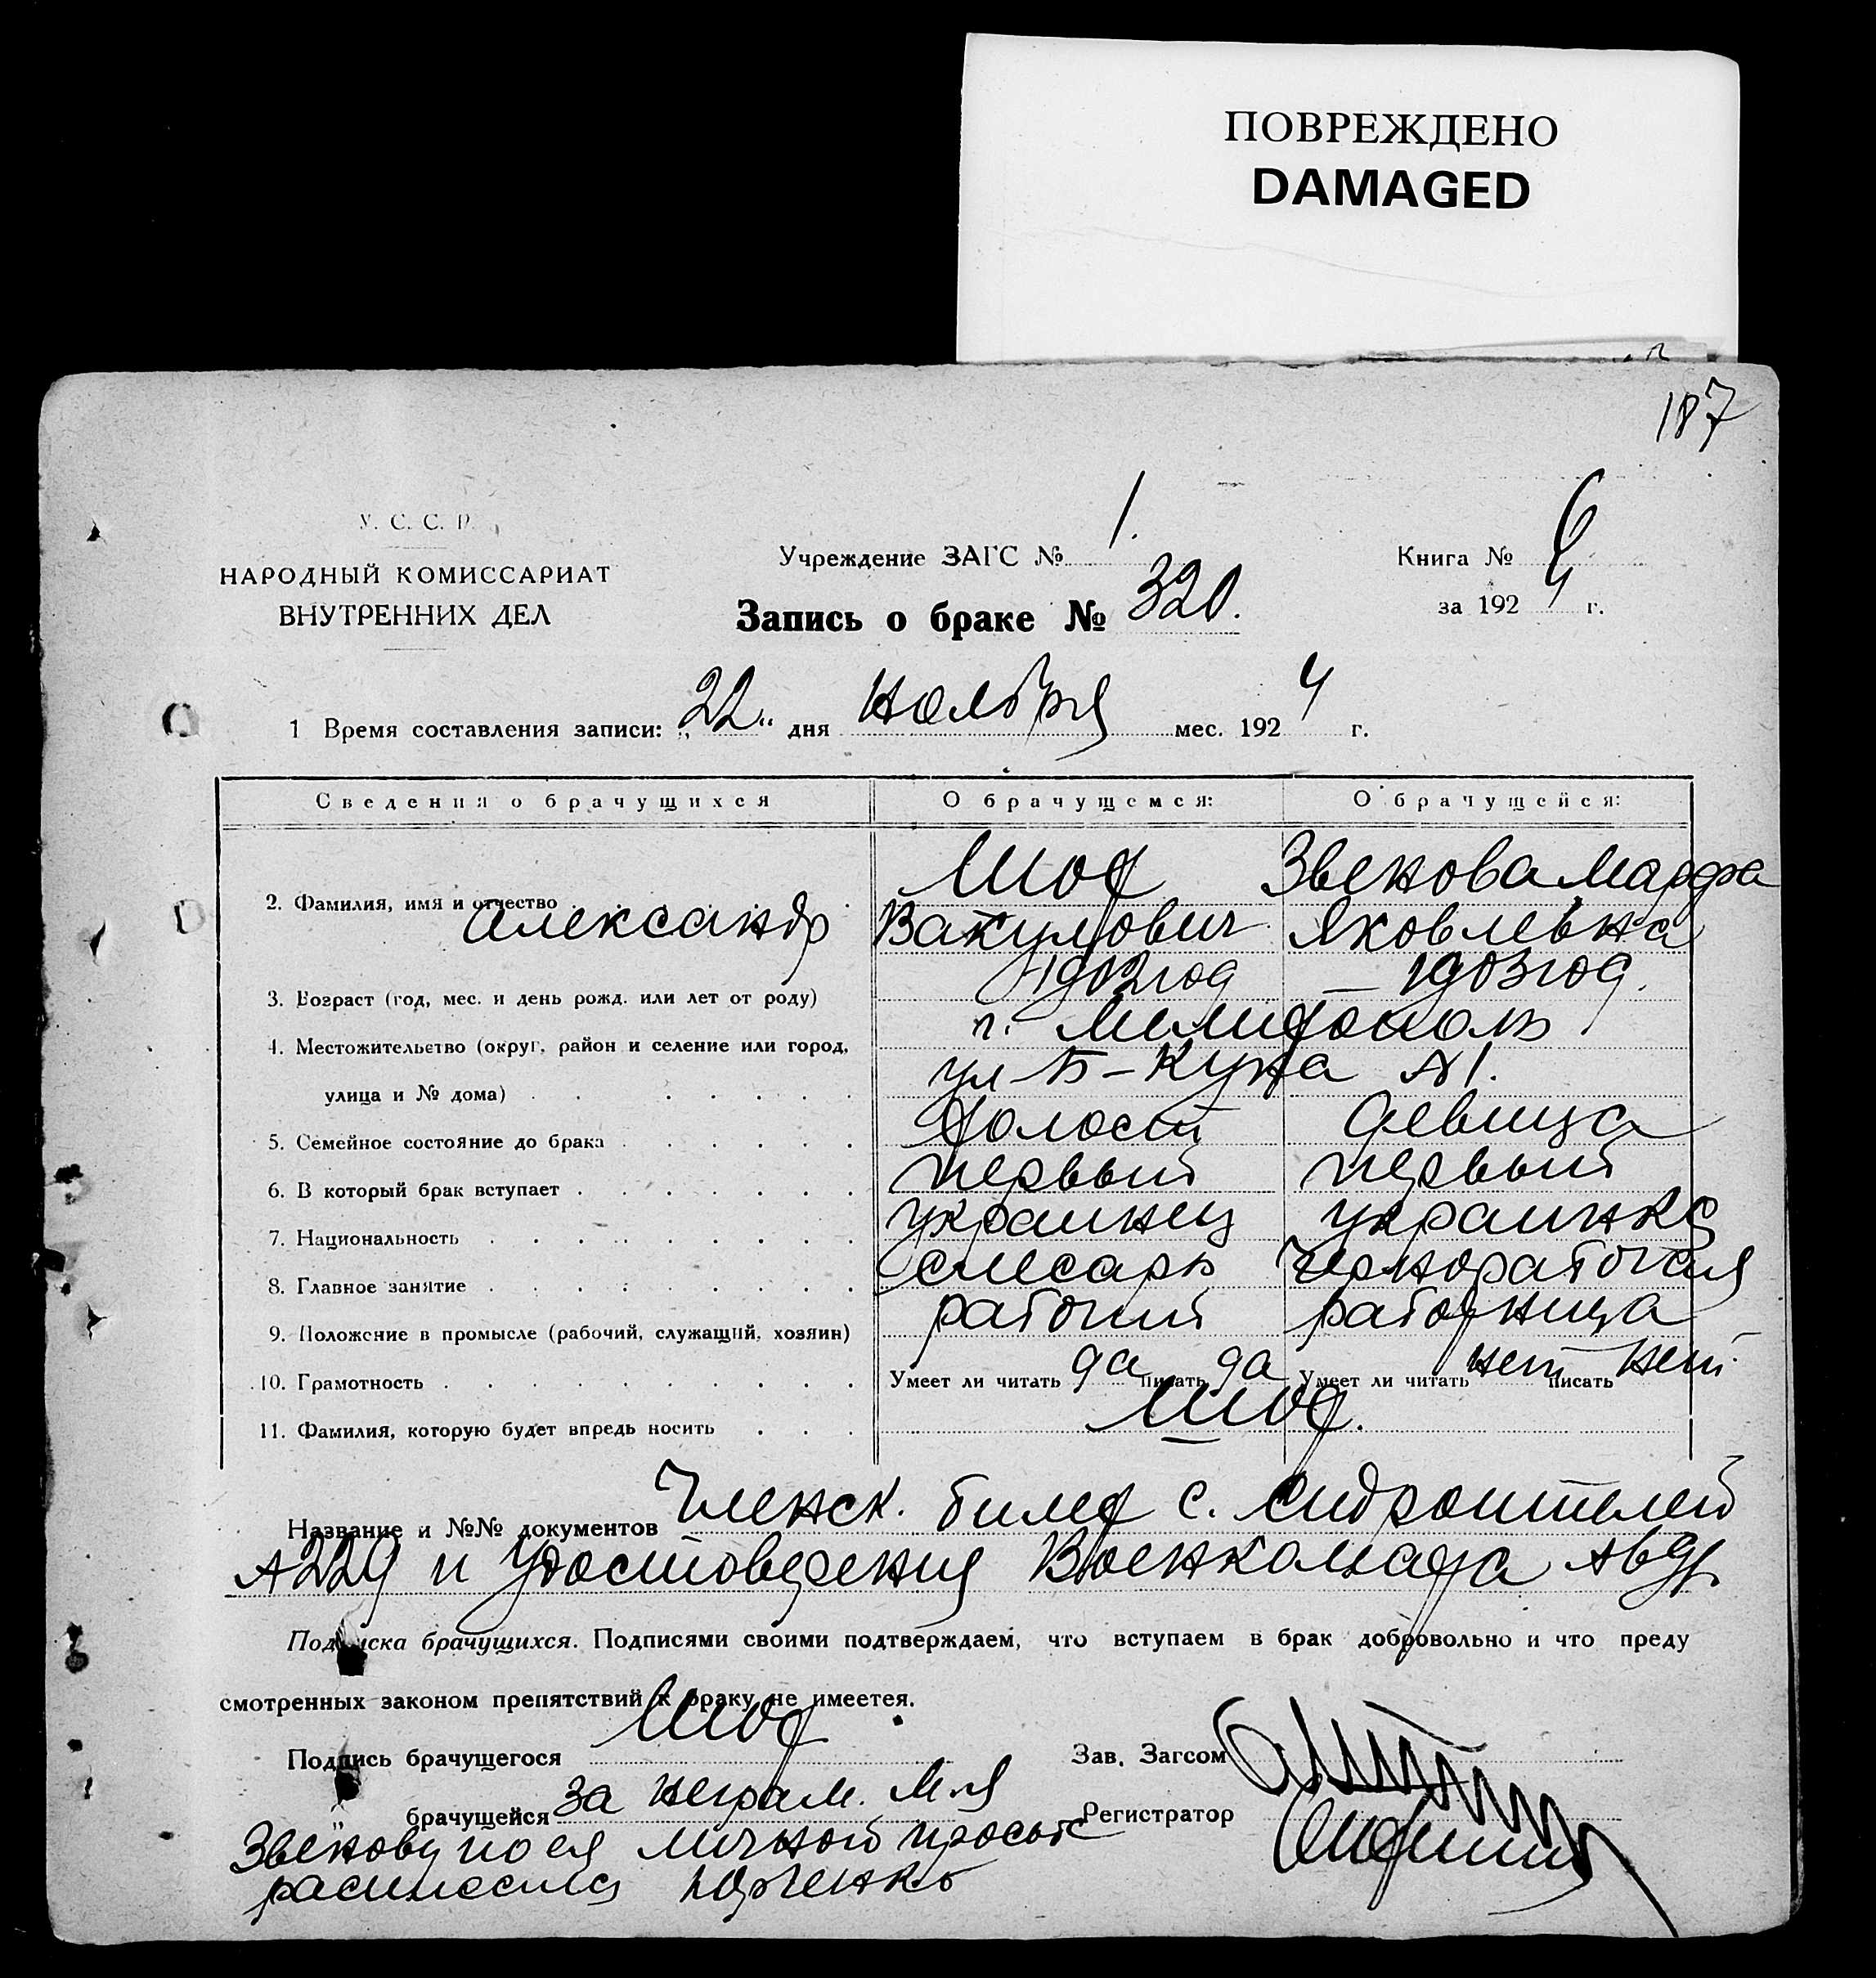 ПОВРЕЖДЕНО
DAMAGED
187
У. С. С. Р.
НАРОДНЫЙ КОМИССАРИАТ
ВНУТРЕННИХ ДЕЛ
Учреждение ЗАГС № 1.
Запись о браке № 320.
Книга № 6
за 1924 г.
1 Время составления записи: „22" дня Ноября мес. 1924 г.
Сведения о брачущихся О брачущемся: О брачущейся:
Звекова Марфа
2. Фамилия, имя и отчество
Александр Вакулович Яковлевна
3. Возраст (год, мес. и день рожд. или лет от роду) 1902 год — 1903 год.
4. Местожительство (округ, район и селение или город, г. Мелитополь
улица и № дома) ул Б-Куна №1.
5. Семейное состояние до брака Холост девица
6. В который брак вступает первый первый
7. Национальность украинец украинка
8. Главное занятие слесарь Чернорабочая
9. Положение в промысле (рабочий, служащий, хозяин) рабочий работница
10. Грамотность Умеет ли читать да писать да Умеет ли читать нет писать нет
11. Фамилия, которую будет впредь носить
Название и №№ документов Членск. билет с.
и Удостоверения Военкомата
Подписка брачущихся. Подписями своими подтверждаем, что вступаем в брак добровольно и что преду
смотренных законом препятствий к браку не имеется.
Подпись брачущегося
Зав. Загсом
брачущейся за неграм.
Регистратор
Звекову по ея личной просьбе